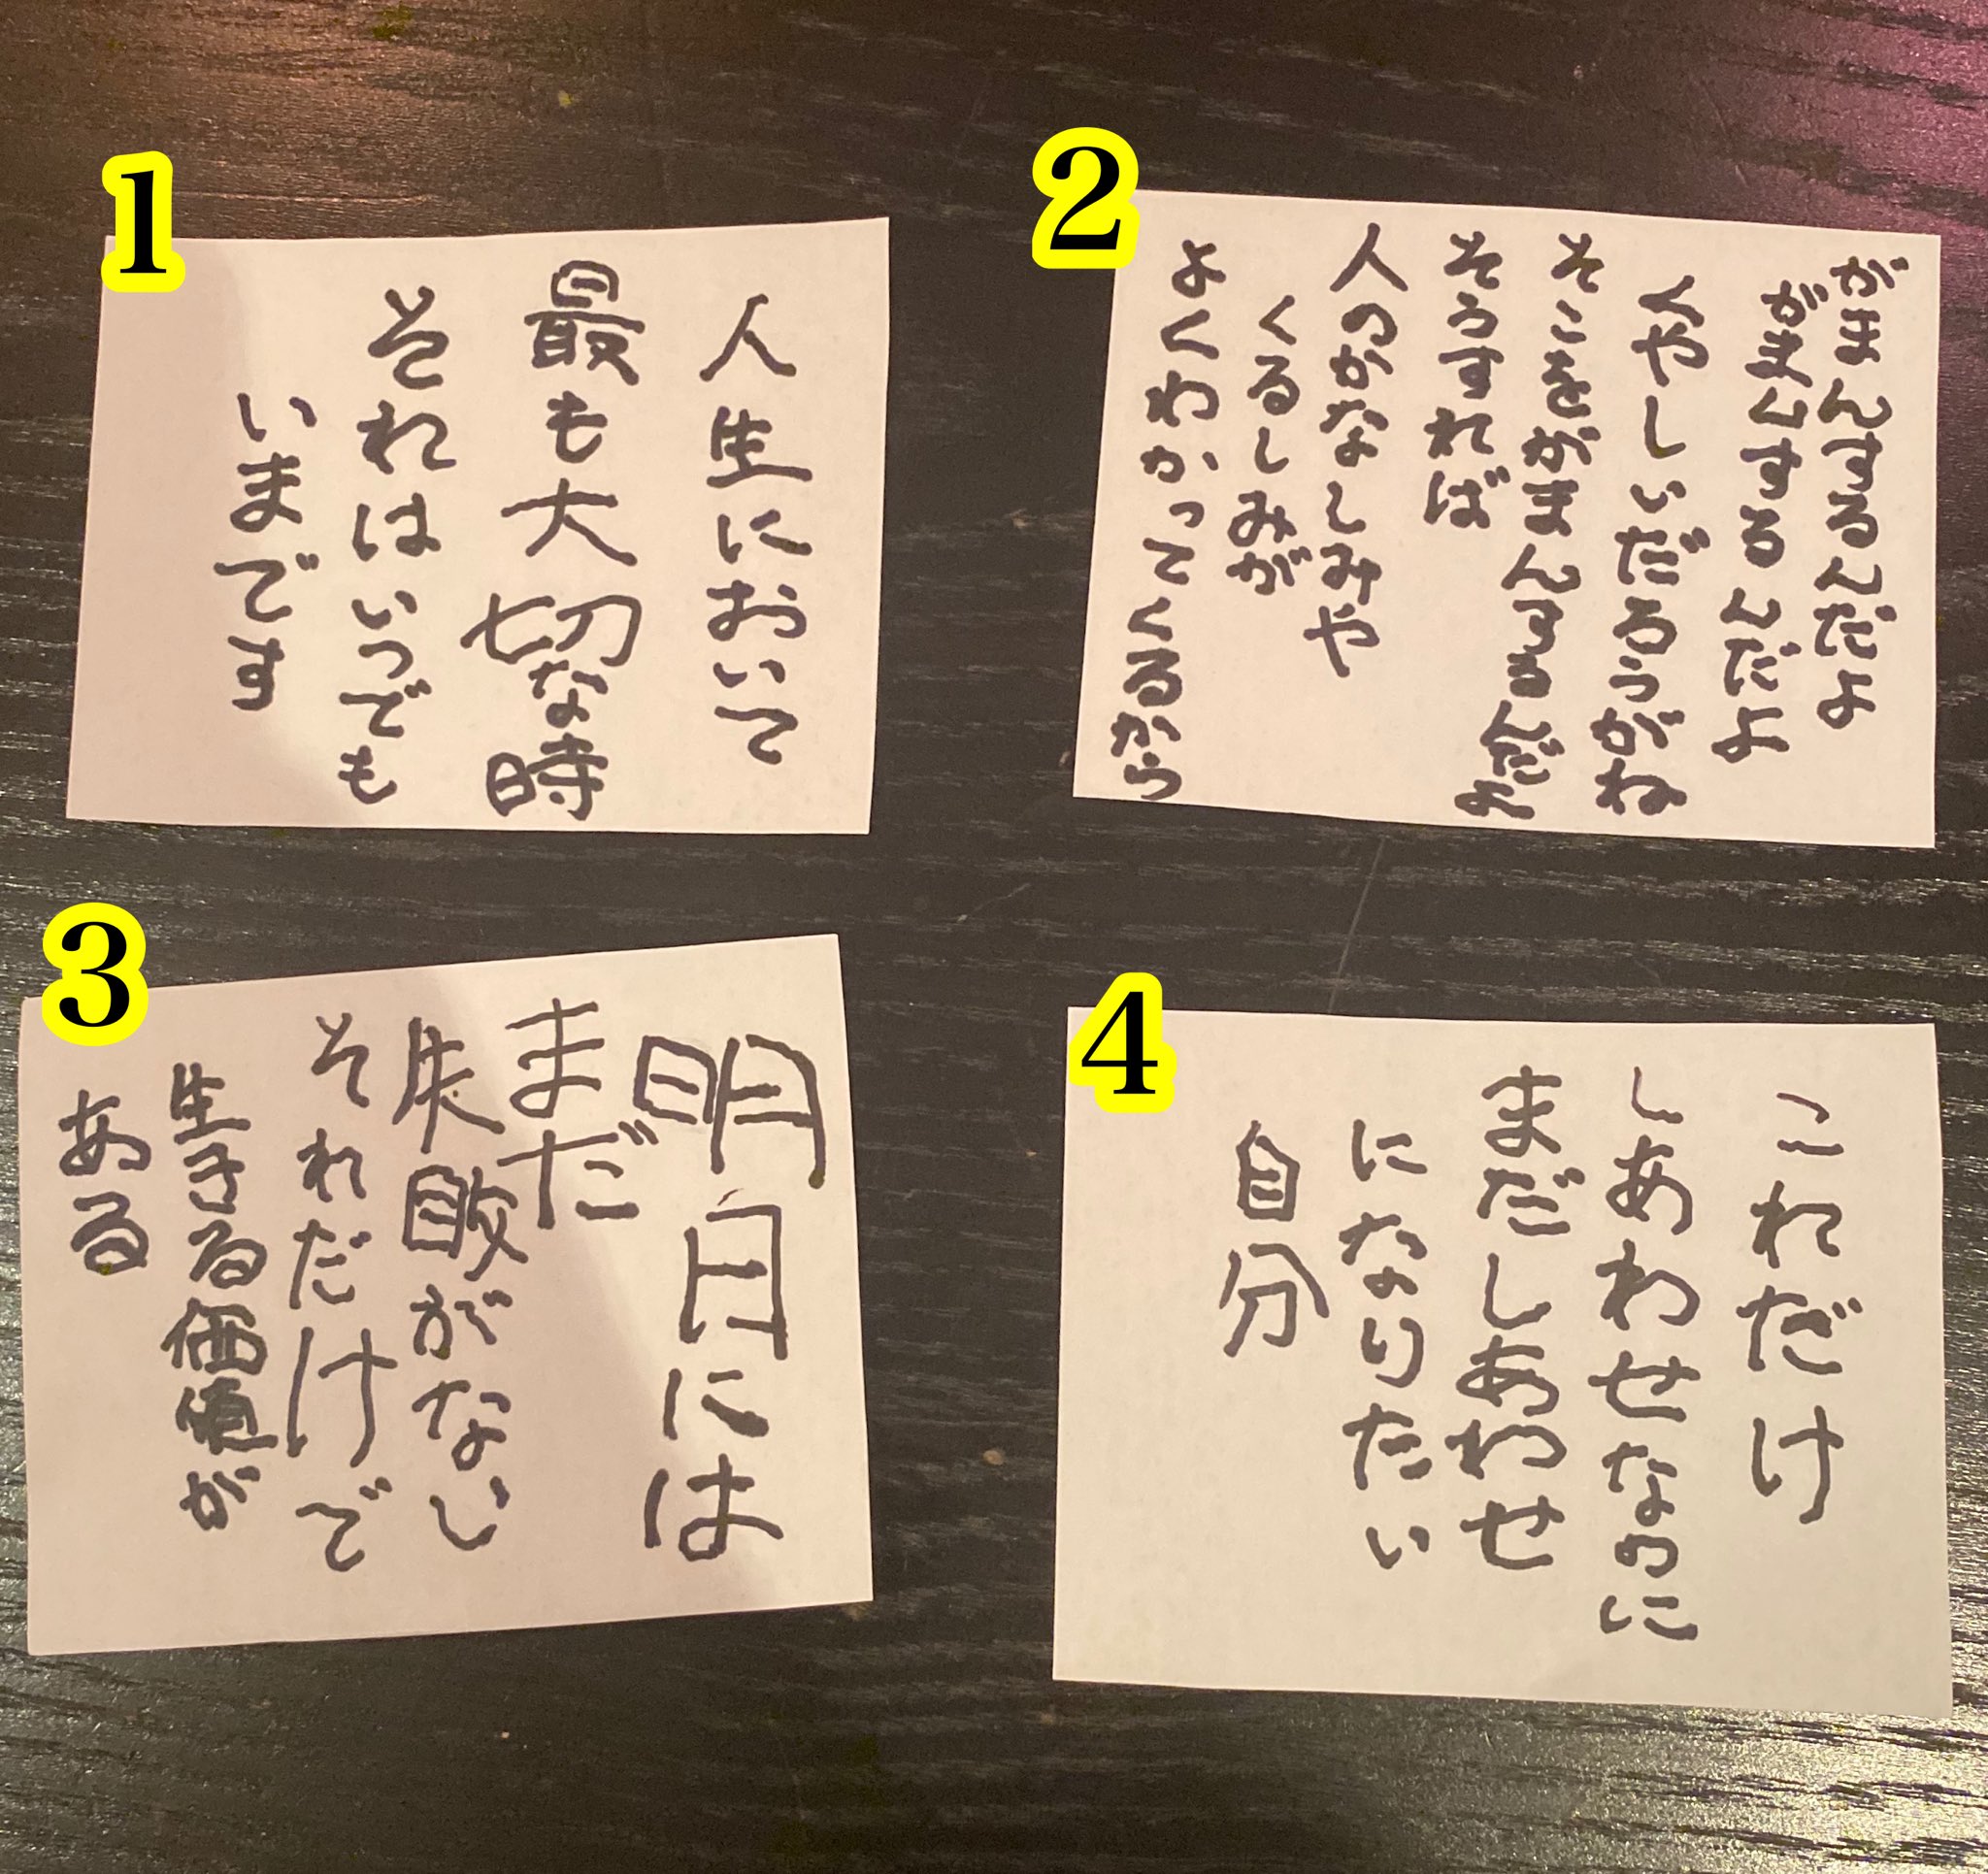 1
人生において
最も大切な時
それはいつでも
いまです
2
がまんするんだよ
がまんするんだよ
くやしいだろうがね
そこをがまんするんだよ
そうすれば
人のかなしみや
くるしみが
よくわかってくるから
3
明日には
まだ
失敗がない
それだけで
生きる価値が
ある
4
これだけ
しあわせなのに
まだしあわせ
になりたい
自分